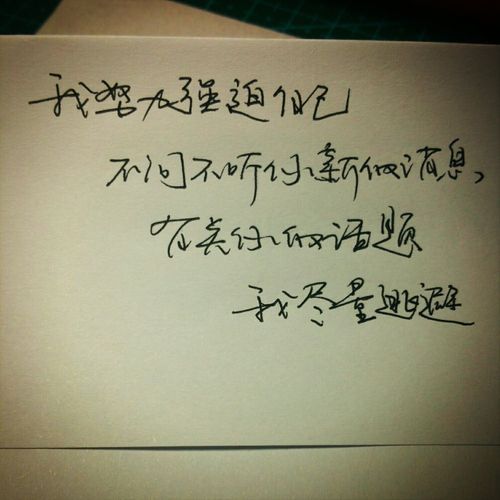 我努力强迫自己
不问不听你新的消息，
有关你的话题
我尽量逃避